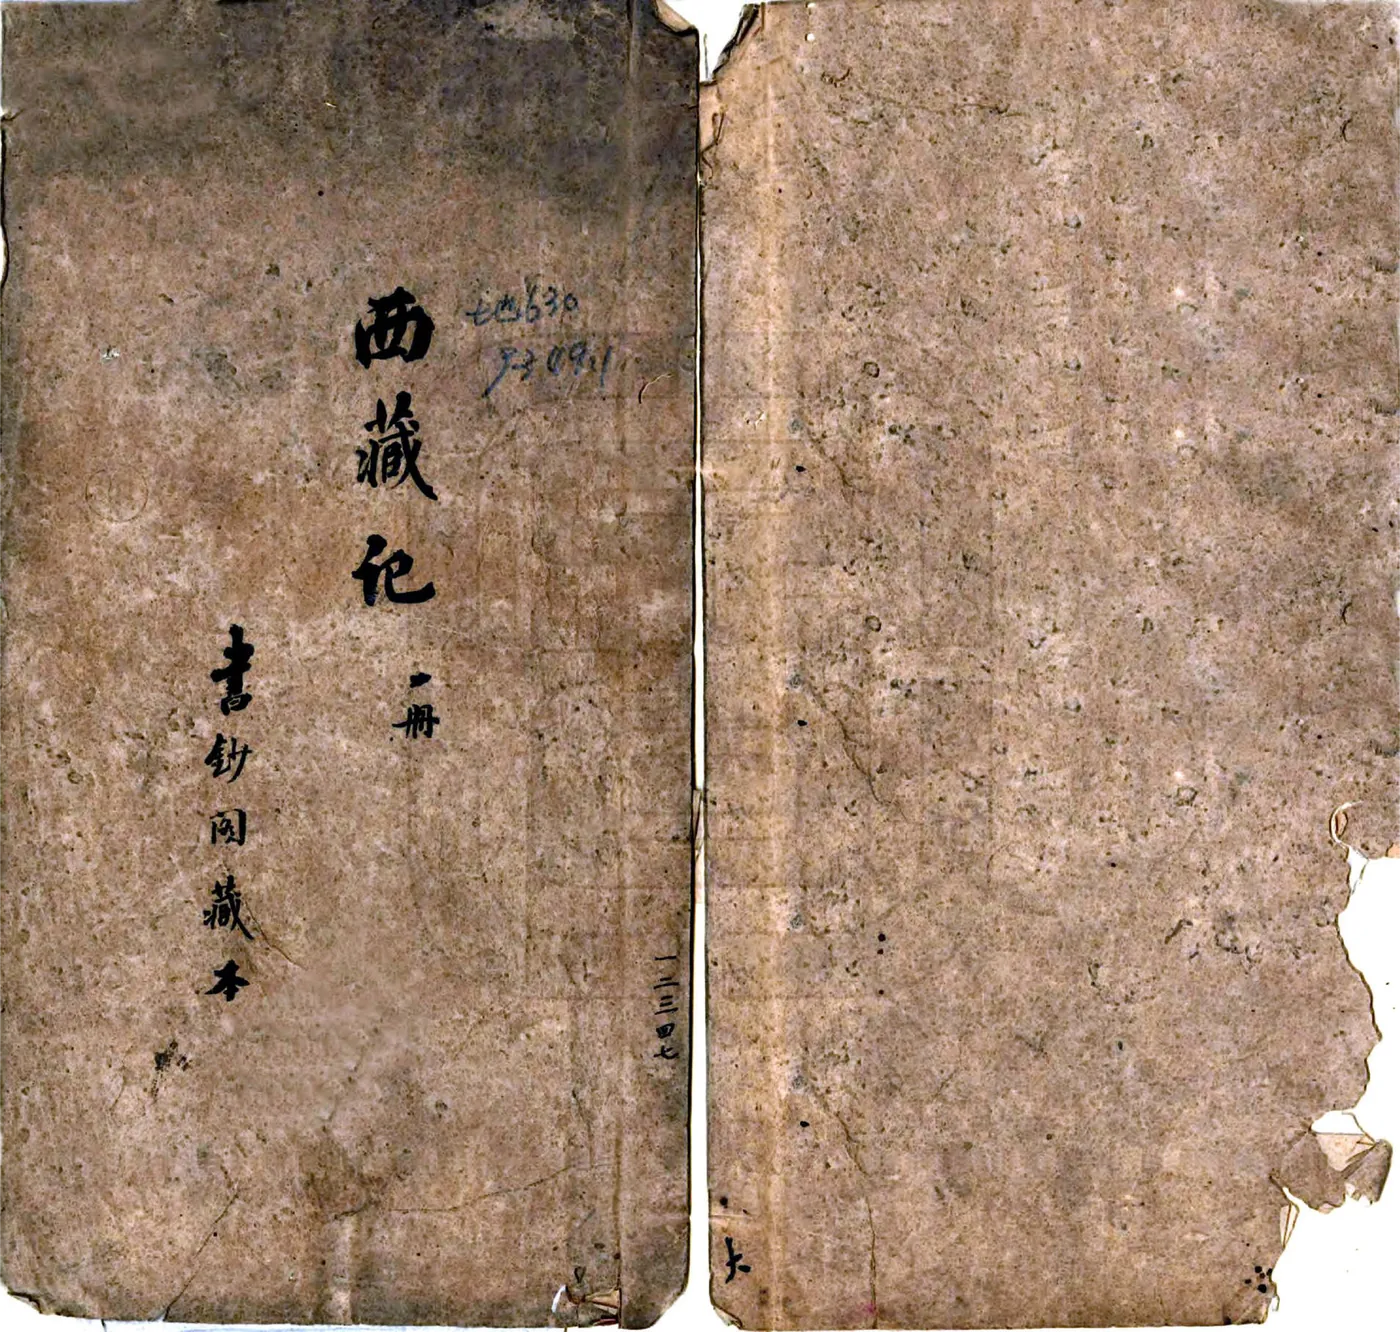 地630
西藏记
一册
書鈔阁藏本
一二三四七
大